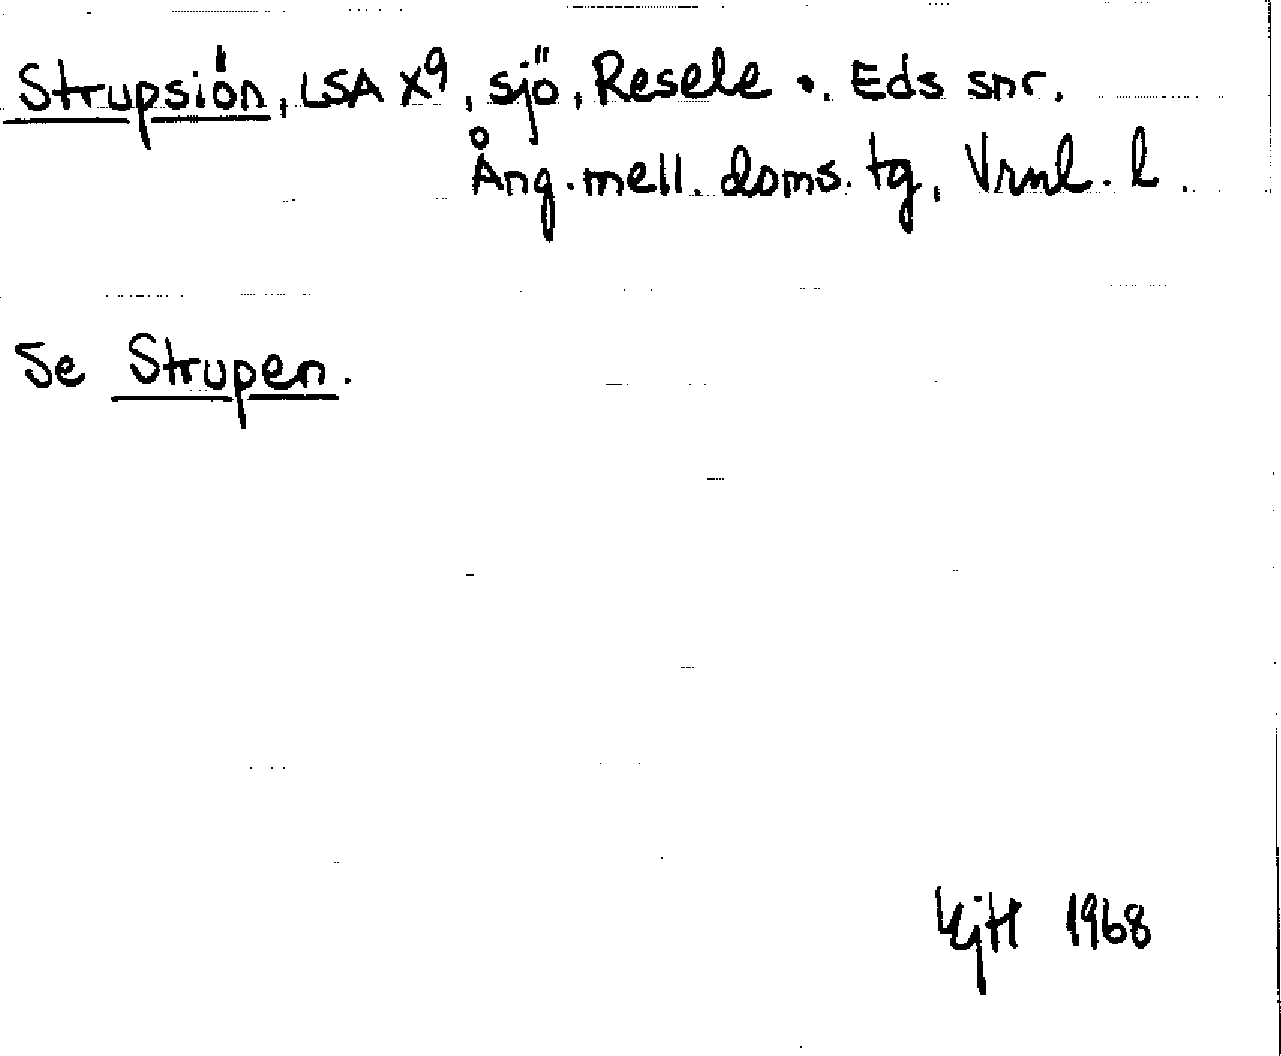 Strupsiön, LSA X9, sjö, Resele s. Eds snr.
Ång. mell. doms. tg, Vrnl. l.
Se Strupen.
KjH 1968